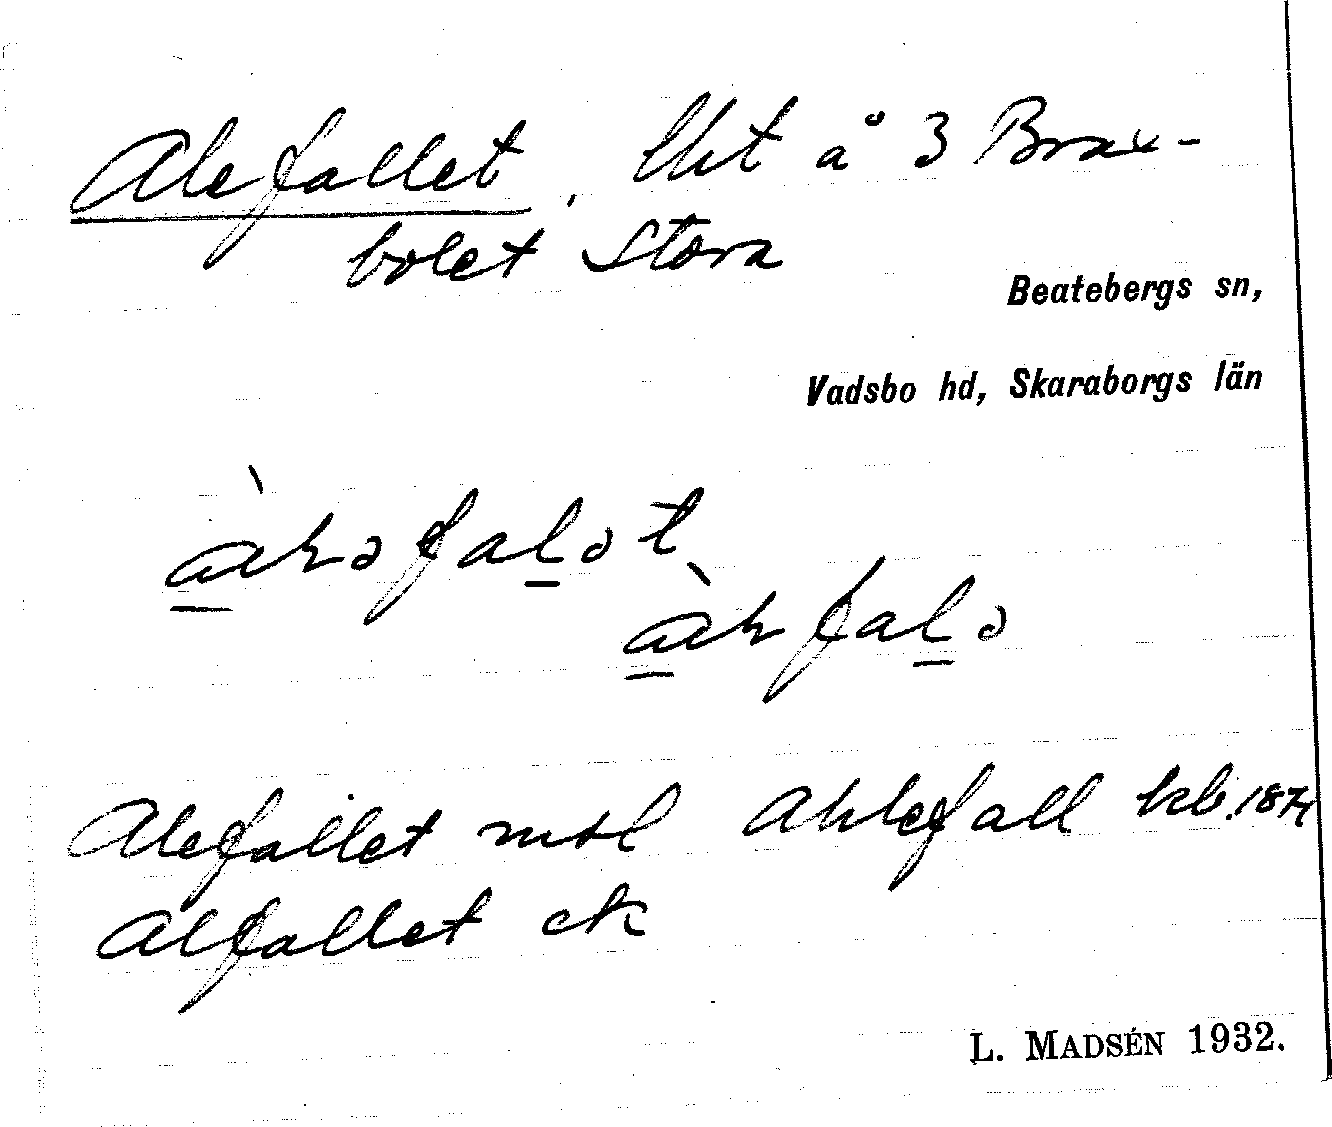 Alefallet, lht å 3 Brax-
bolet Stora
Beatebergs sn,
Vadsbo hd, Skaraborgs län
Alefallet msl Ahlefall kb. 1874
Alfallet ek
L. MADSÉN 1932.